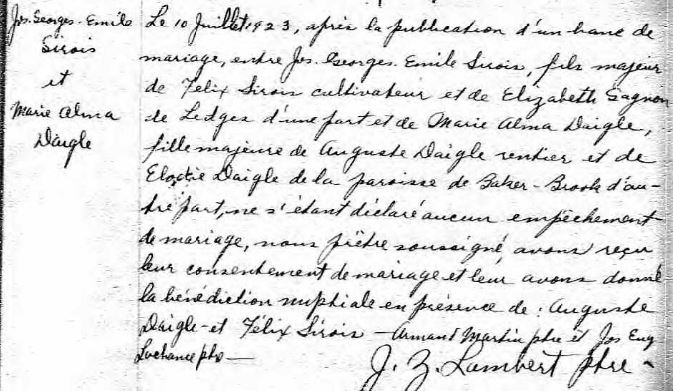 Jos. Georges. Emile
Sirois
et
Marie Alma
Daigle
Le 10 Juillet 1923, après la publication d'un banc de
mariage, entre Jos. Georges. Emile Sirois, fils majeur
de Félix Sirois cultivateur et de Elizabeth Gagnon
de Ledges d'une part et de Marie Alma Daigle,
fille majeure de Auguste Daigle rentier et de
Daigle de la paroisse de Baker-Brook d'au-
tre part, ne s'étant déclaré aucun empêchement
de mariage, nous prêtre soussigné, avons reçu
leur consentement de mariage et leur avons donné
la bénédiction nuptiale en présence de: Auguste
Daigle et Félix Sirois - Armand Martin ptre et Jos Eug
Lachance
J. Z. Lambert ptre -